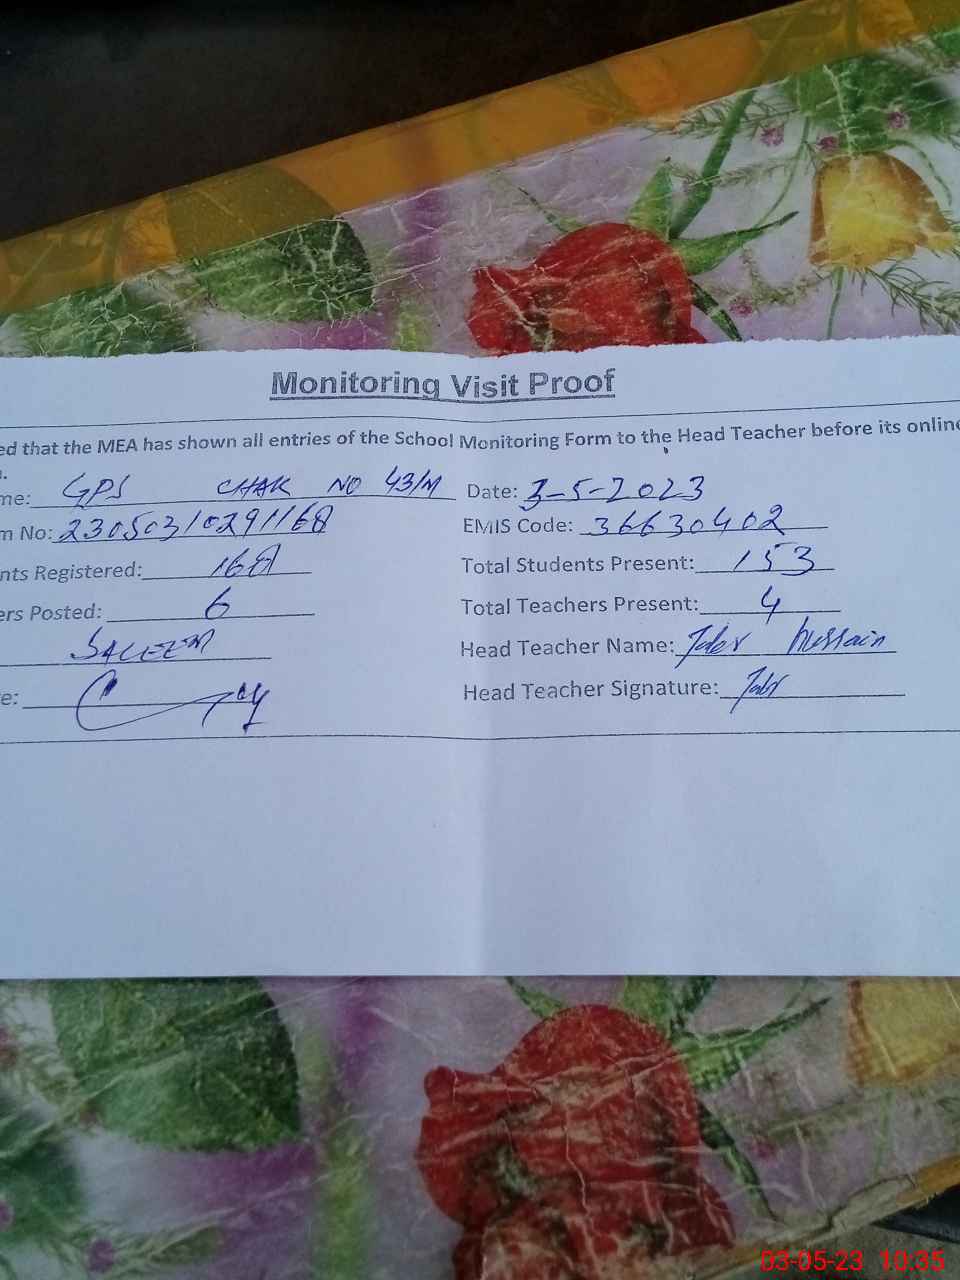 Monitoring Visit Proof
ed that the MEA has shown all entries of the School Monitoring Form to the Head Teacher before its online
me: GPS CHAK NO 43/M Date: 3-5-2023
m No: 23050310291168 EMIS Code: 36630402
nts Registered: 168 Total Students Present: 153
ers Posted: 6 Total Teachers Present: 4
SALEEM Head Teacher Name: Hussain
e: Head Teacher Signature:
03-05-23 10:35